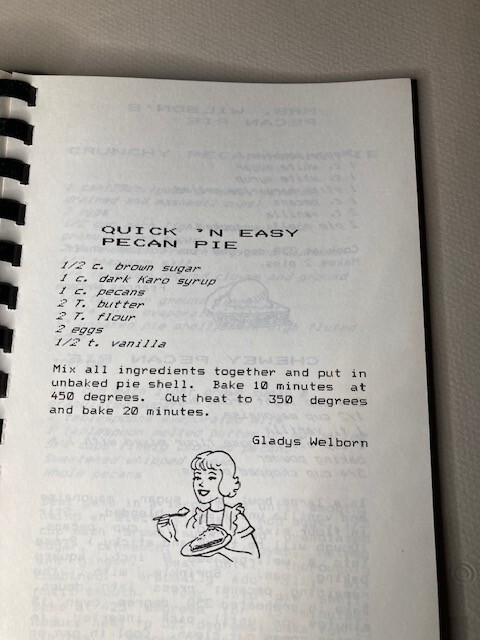 QUICK 'N EASY
PECAN PIE
1/2 c. brown sugar
1 c. dark Karo syrup
1 c. pecans
2 T. butter
2 T. flour
2 eggs
1/2 t. vanilla
Mix all ingredients together and put in
unbaked pie shell. Bake 10 minutes at
450 degrees. Cut heat to 350 degrees
and bake 20 minutes.
Gladys Welborn